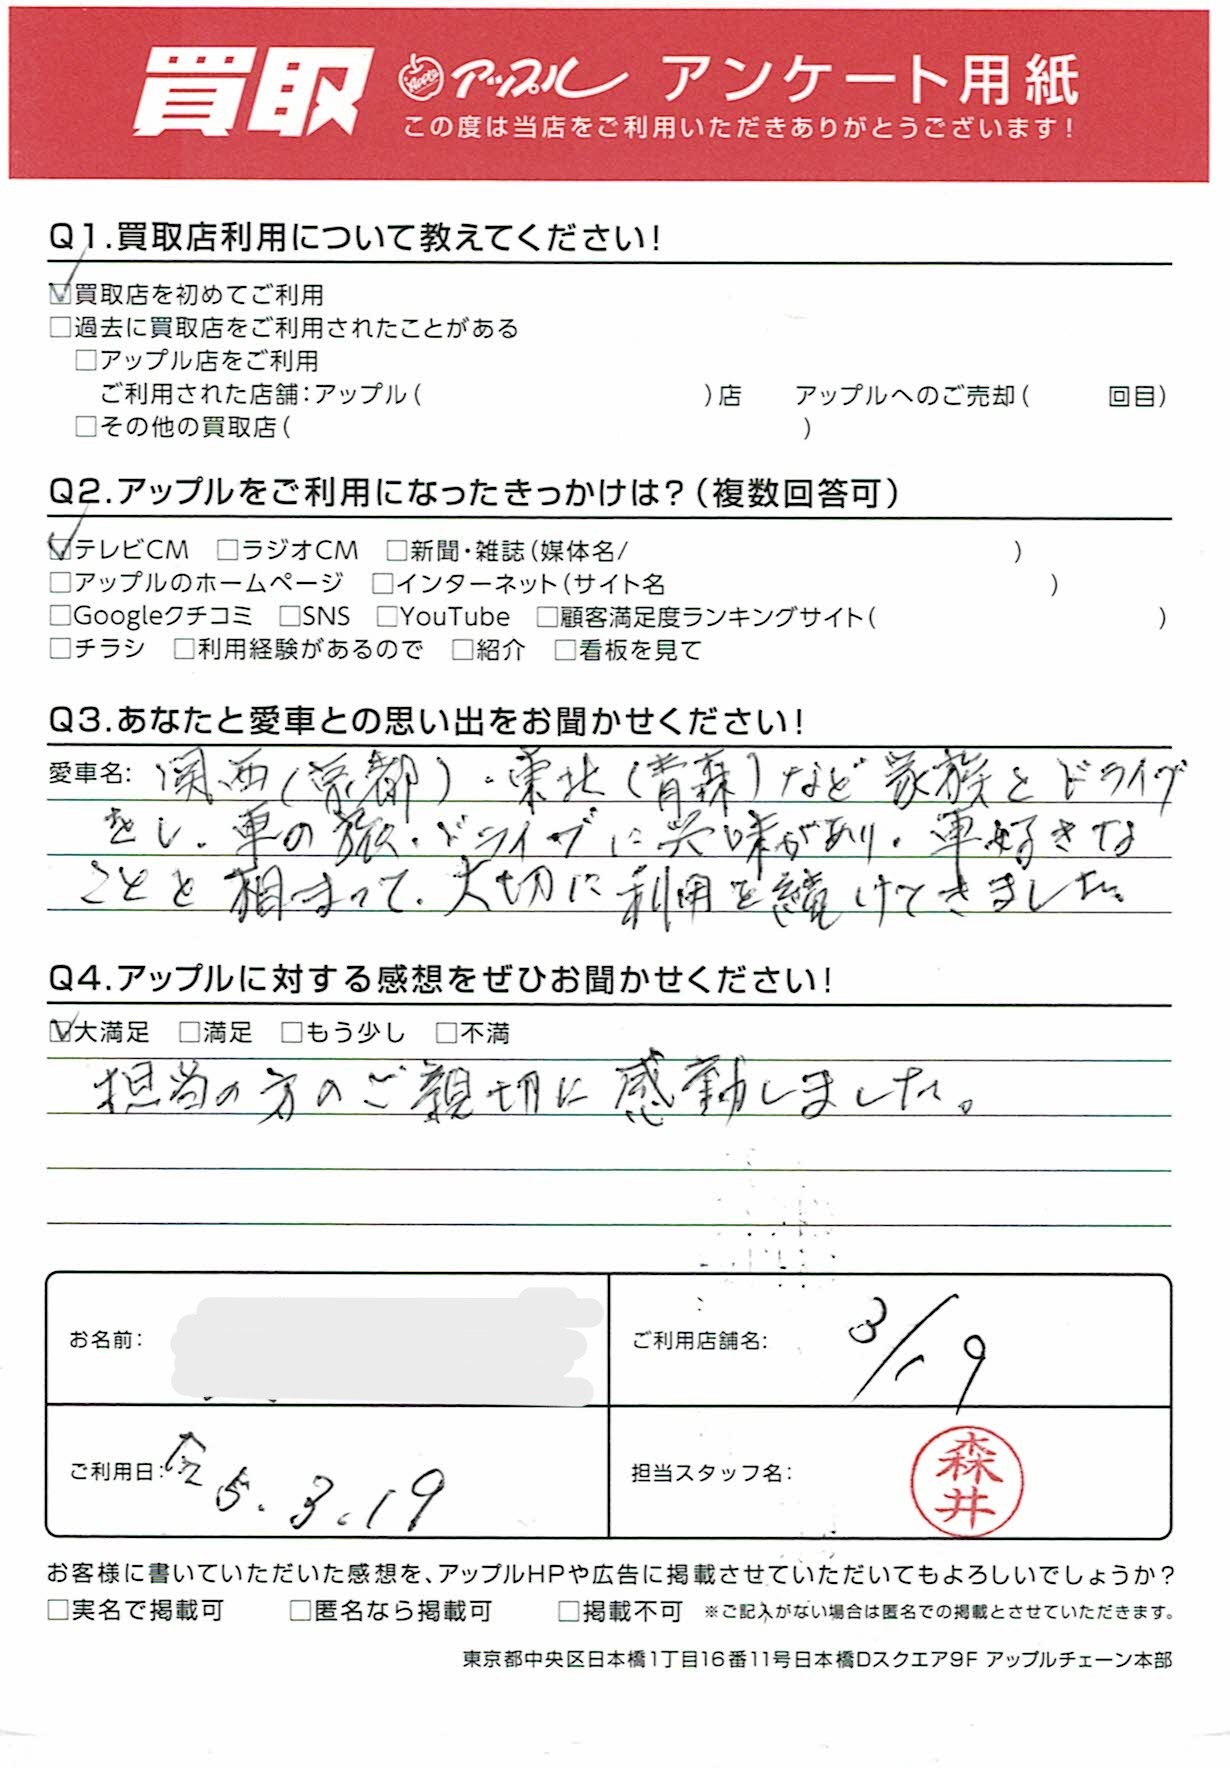 買取 Apple アップル アンケート用紙
この度は当店をご利用いただきありがとうございます!
Q1.買取店利用について教えてください!
☑買取店を初めてご利用
□過去に買取店をご利用されたことがある
□アップル店をご利用
ご利用された店舗:アップル( )店 アップルへのご売却( 回目)
□その他の買取店( )
Q2.アップルをご利用になったきっかけは?(複数回答可)
☑テレビCM □ラジオCM □新聞・雑誌(媒体名/ )
□アップルのホームページ □インターネット(サイト名 )
□Googleクチコミ □SNS □YouTube □顧客満足度ランキングサイト( )
□チラシ □利用経験があるので □紹介 □看板を見て
Q3.あなたと愛車との思い出をお聞かせください!
愛車名: 関西(京都)・東北(青森)など家族とドライブ
をし、車の旅・ドライブに興味があり、車好きな
ことと相まって、大切に利用を続けてきました。
Q4.アップルに対する感想をぜひお聞かせください!
☑大満足 □満足 □もう少し □不満
担当の方のご親切に感動しました。
お名前:
ご利用店舗名: 3/19
ご利用日: R5.3.19
担当スタッフ名: 森井
お客様に書いていただいた感想を、アップルHPや広告に掲載させていただいてもよろしいでしょうか?
□実名で掲載可 □匿名なら掲載可 □掲載不可 ※ご記入がない場合は匿名での掲載とさせていただきます。
東京都中央区日本橋1丁目16番11号日本橋Dスクエア9F アップルチェーン本部